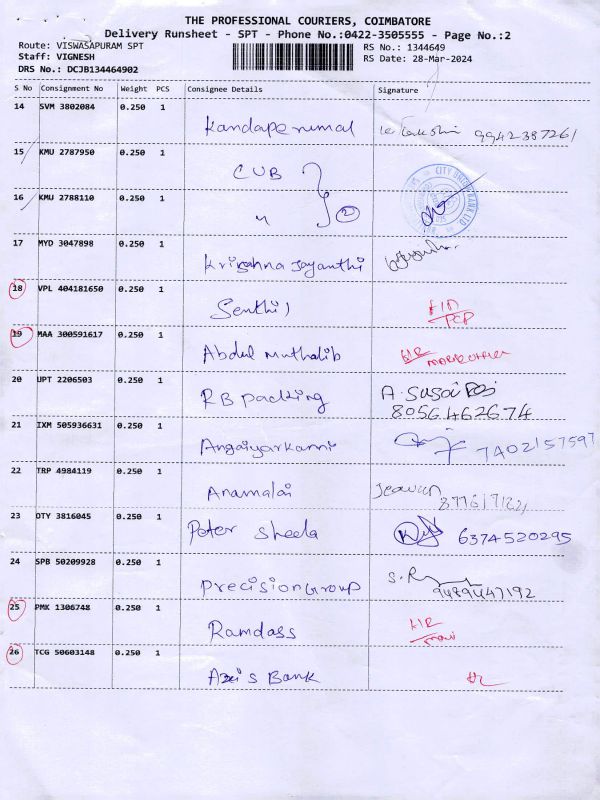 THE PROFESSIONAL COURIERS, COIMBATORE
Delivery Runsheet - SPT - Phone No.:0422-3505555 - Page No.:2
Route: VISWASAPURAM SPT
RS No.: 1344649
Staff: VIGNESH
RS Date: 28-Mar-2024
DRS No.: DCJB134464902
S No Consignment No Weight PCS Consignee Details Signature
14 SVM 3802084 0.250 1
Kandaperumal 9942387261
15 KMU 2787950 0.250 1
CUB
16 KMU 2788110 0.250 1
" 2
17 MYD 3047898 0.250 1
Krishna Jayanthi
18 VPL 404181650 0.250 1
Senthil
19 MAA 300591617 0.250 1
Abdul Muthalib
20 UPT 2206503 0.250 1
RB packing A. Susai
8056462674
21 IXM 505936631 0.250 1
Angaiyarkanni 7402157597
22 TRP 4984119 0.250 1
Anamalai
23 DTY 3816045 0.250 1
Peter Sheela 6374520295
24 SPB 50209928 0.250 1
Precision Group S.R
9489447192
25 PMK 1306748 0.250 1
Ramdass
26 TCG 50603148 0.250 1
Axis Bank